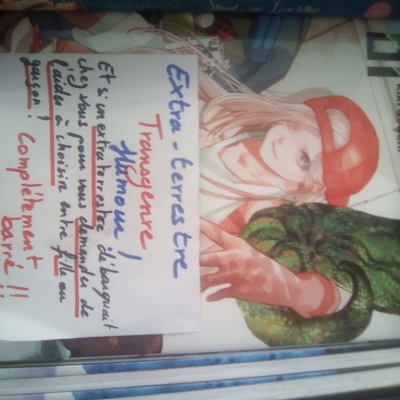 Extra-terrestre
Transgenre
Humour !
Et si un extraterrestre débarquait
chez vous pour vous demander de
l'aider à choisir entre fille ou
garçon ! Complètement
barré !!
01